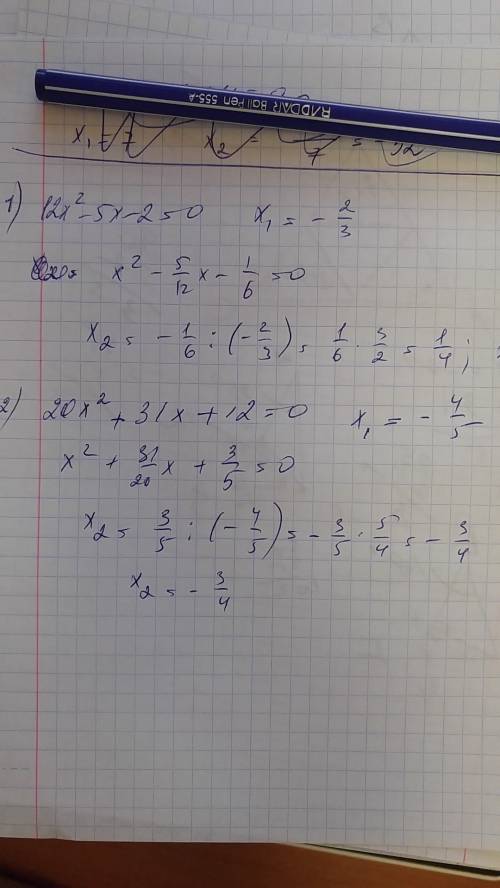 RADDAR Ball Pen 555-A
1) 12x² - 5x - 2 = 0   x₁ = - 2/3
x² - 5/12 x - 1/6 = 0
x₂ = - 1/6 : (- 2/3) = 1/6 · 3/2 = 1/4 ;
2) 20x² + 31x + 12 = 0   x₁ = - 4/5
x² + 31/20 x + 3/5 = 0
x₂ = 3/5 : (- 4/5) = - 3/5 · 5/4 = - 3/4
x₂ = - 3/4